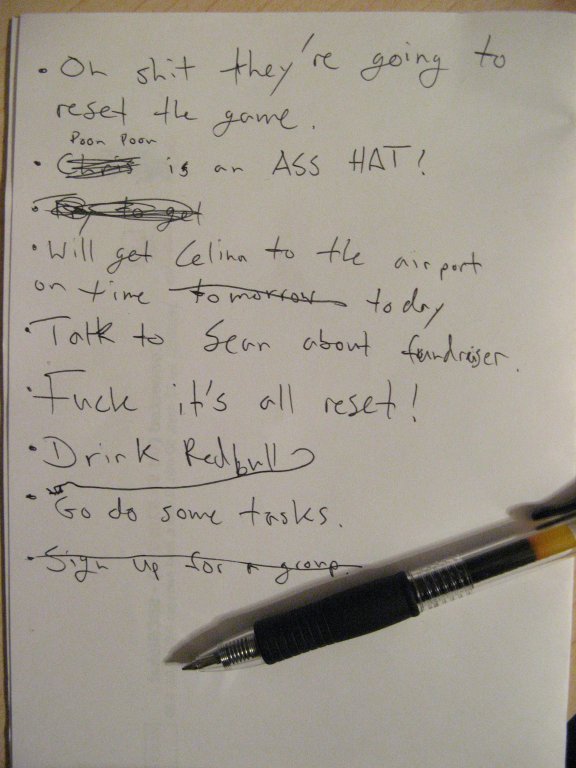 • Oh shit they're going to
reset the game.
Poon Poon
• Chris is an ASS HAT!
• Try to get
• Will get Celina to the airport
on time tomorrow today
• Talk to Sean about fundraiser.
• Fuck it's all reset!
• Drink Redbull
• Go do some tasks.
• Sign up for a group.